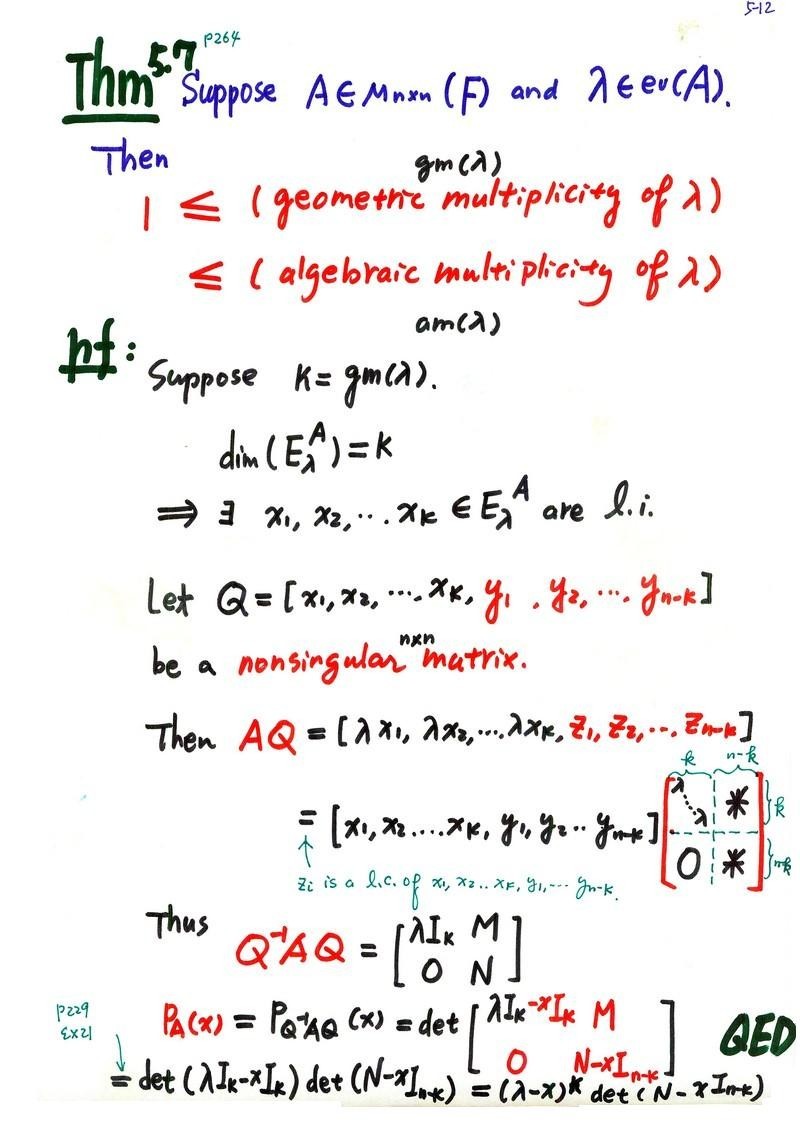 5-12
Thm 5.7 P264
Suppose A ∈ Mn×n (F) and λ ∈ ev(A).
Then
gm(λ)
1 ≤ (geometric multiplicity of λ)
≤ (algebraic multiplicity of λ)
am(λ)
pf:
Suppose K = gm(λ).
dim(E_λ^A) = K
⇒ ∃ x1, x2, ... xK ∈ E_λ^A are l.i.
Let Q = [x1, x2, ..., xK, y1, y2, ... yn-k]
n×n
be a nonsingular matrix.
Then AQ = [λx1, λx2, ... λxK, z1, z2, ... zn-k]
k n-k
= [x1, x2 .... xK, y1, y2 .. yn-k] [λ ... λ * k
O * n-k]
↑ zi is a l.c. of x1, x2 .. xK, y1, ... yn-k.
Thus
Q⁻¹AQ = [λIK M
O N]
P229
EX21
PA(x) = PQ⁻¹AQ (x) = det [λIK-xIK M
O N-xIn-k]
QED
= det (λIK-xIK) det (N-xIn-k) = (λ-x)^K det (N-xIn-k)